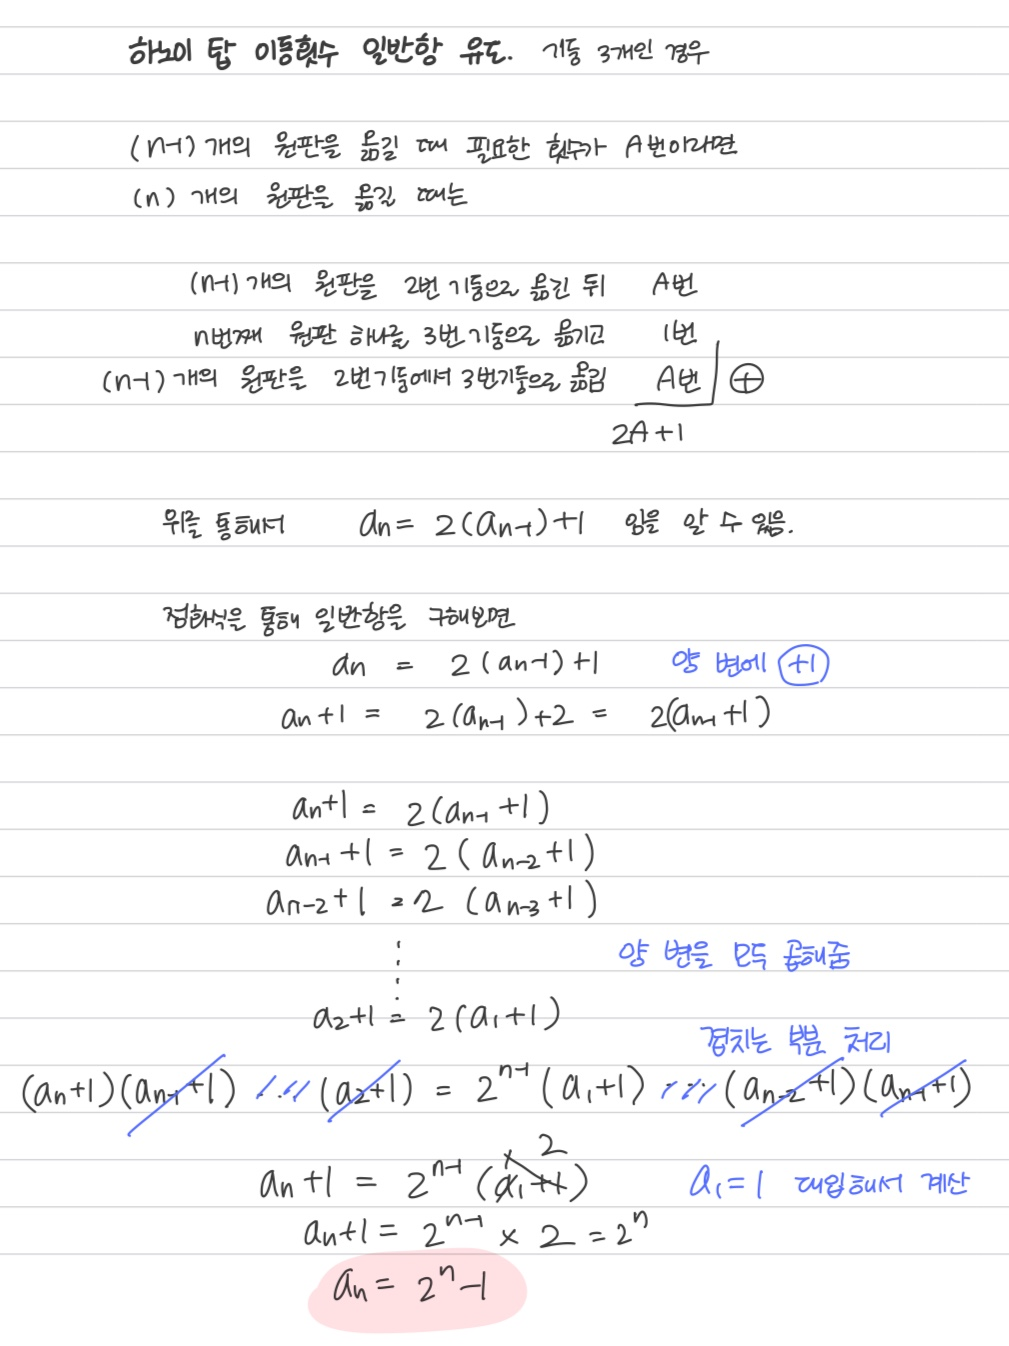 하노이 탑 이동횟수 일반항 유도. 기둥 3개인 경우
(n-1) 개의 원판을 옮길 때 필요한 횟수가 A번이라면
(n) 개의 원판을 옮길 때는
(n-1) 개의 원판을 2번 기둥으로 옮긴 뒤 A번
n번째 원판 하나를 3번 기둥으로 옮기고 1번
(n-1) 개의 원판을 2번기둥에서 3번기둥으로 옮김 A번 ⊕
2A+1
위를 통해서 aₙ = 2(aₙ₋₁)+1 임을 알 수 있음.
점화식을 통해 일반항을 구해보면
aₙ = 2(aₙ₋₁)+1 양 변에 +1
aₙ+1 = 2(aₙ₋₁)+2 = 2(aₙ₋₁+1)
aₙ+1 = 2(aₙ₋₁+1)
aₙ₋₁+1 = 2(aₙ₋₂+1)
aₙ₋₂+1 = 2(aₙ₋₃+1)
양 변을 모두 곱해줌
a₂+1 = 2(a₁+1)
겹치는 부분 처리
(aₙ+1)(aₙ₋₁+1) ..... (a₂+1) = 2ⁿ⁻¹(a₁+1) ..... (aₙ₋₂+1)(aₙ₋₁+1)
2
aₙ+1 = 2ⁿ⁻¹(a₁+1) a₁=1 대입해서 계산
aₙ+1 = 2ⁿ⁻¹ × 2 = 2ⁿ
aₙ = 2ⁿ-1